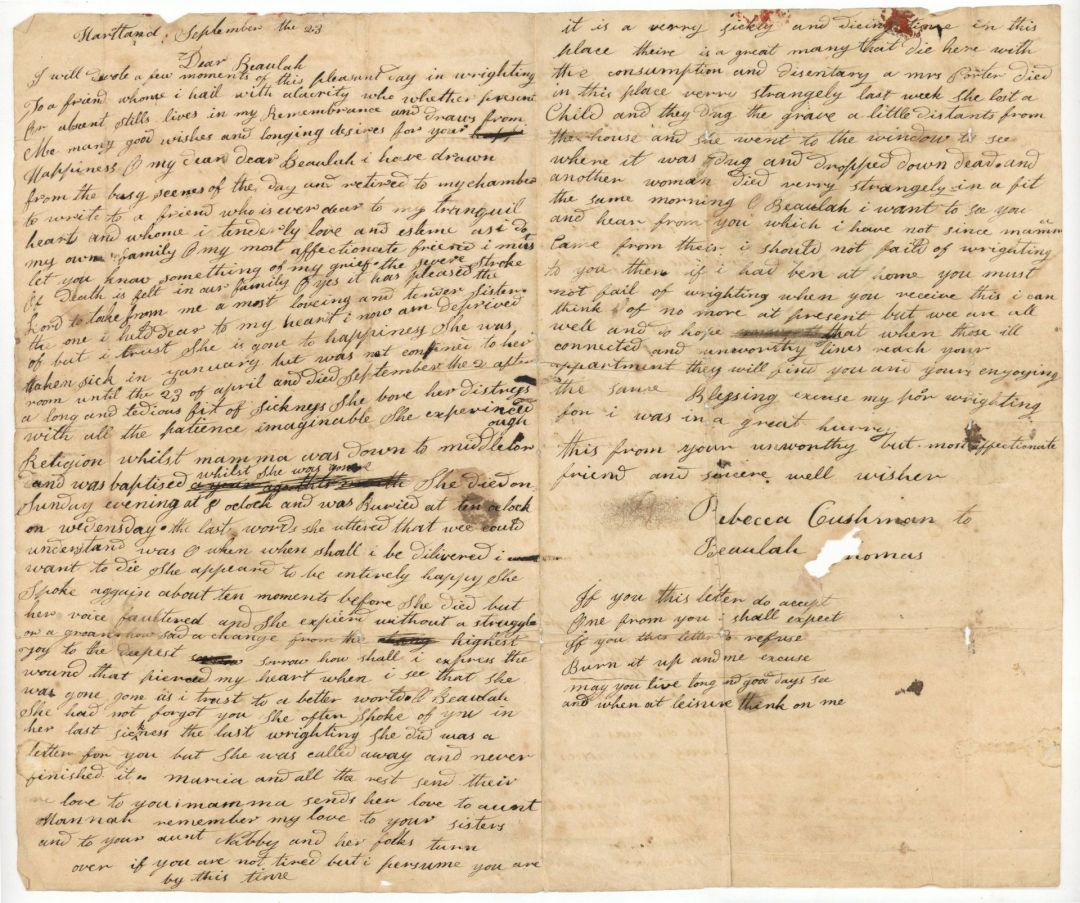 Hartland September the 23
Dear Beaulah
I will devote a few moments of this pleasant day in wrighting
To a friend whome i hail with alacrity who whether present
Or absent stills lives in my Remembrance and draws from
Me many good wishes and longing desires for your
Happiness O my dear dear Beaulah i have drawn
from the busy seenes of the day and retired to my chamber
to write to a friend who is ever dear to my tranquil
heart and whome i tenderly love and esteme as i do
my own family O my most affectionate friend i must
let you know something of my grief the severe stroke
Of Death is felt in our family O yes it has pleased the
Lord to take from me a most loveing and tender sister
the one i held dear to my heart i now am deprived
of but i trust She is gone to happiness She was
taken sick in january but was not confined to her
room until the 23 of april and died September the 2 after
a long and tedious fit of Sickness She bore her distress
with all the patience imaginable She experinced
Religion whilst mamma was down to middlebor ough
and was baptised whilst She was gone She died on
Sunday evening at 8 oclock and was Buried at ten oclock
on wedensday the last words she uttered that wee could
understand was O when when shall i be dilivered i
want to die She appeard to be entirely happy She
Spoke aggain about ten moments before She died but
her voice faultered and She expierd without a struggle
or a groan how sad a change from the highest
joy to the deepest sorrow how shall i express the
wound that pierced my heart when i see that she
was gone gone as i trust to a better world O Beaulah
She had not forgot you She often spoke of you in
her last sickness the last wrighting She did was a
letter for you but She was called away and never
finished it marcia and all the rest send their
love to you mamma sends her love to aunt
Hannah remember my love to your sisters
and to your aunt Nabby and her folks turn
over if you are not tired but i persume you are
by this time
it is a verry sickly and dieing time in this
place theire is a great many that die here with
the consumption and disentary a mrs Porter died
in this place verry strangely last week She lost a
Child and they dug the grave a little distants from
the house and she went to the window to see
where it was dug and dropped down dead and
another woman died verry strangely in a fit
the same morning O Beaulah i want to see you
and hear from you which i have not since mamma
Came from their i should not faild of wrighting
to you then if i had ben at home you must
not fail of wrighting when you receive this i can
think of no more at present but wee are all
well and i hope that when those ill
connected and unworthy lines reach your
appartment they will find you and your enjoying
the same Blessing excuse my por wrighting
for i was in a great hurry
this from your unworthy but most affectionate
friend and sincere well wisher
Rebecca Cushman to
Beaulah homas
If you this letter do accept
One from you i shall expect
If you this letter refuse
Burn it up and me excuse
may you live long nd good days see
and when at leisure think on me